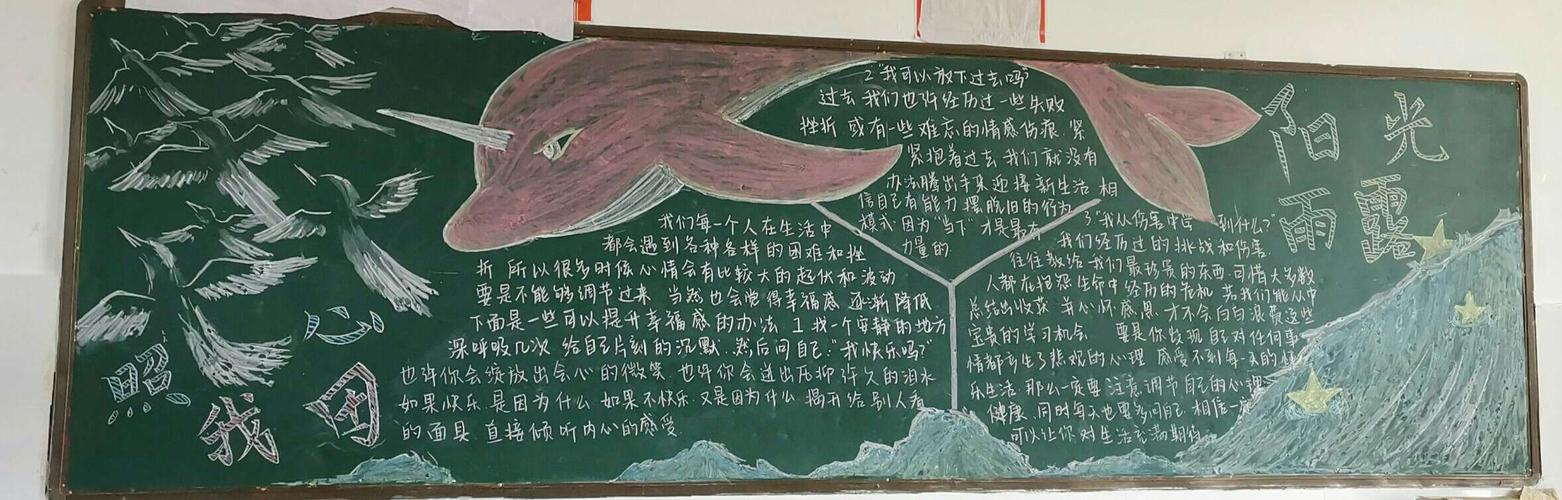 阳光
雨露
照
心
我
团
我们每一个人在生活中
都会遇到各种各样的困难和挫
折 所以很多时候心情会有比较大的起伏和波动
要是不能够调节过来 当然也会觉得幸福感 逐渐降低
下面是一些可以提升幸福感的办法 1 找一个安静的地方
深呼吸几次 给自己片刻的沉默 然后问自己："我快乐吗?"
也许你会绽放出会心的微笑 也许你会迸出压抑许久的泪水
如果快乐 是因为什么 如果不快乐 又是因为什么 揭开给别人看
的面具 直接倾听内心的感受
2 "我可以放下过去吗"
过去 我们也许经历过一些失败
挫折 或有一些难忘的情感伤痕 紧
紧抱着过去 我们就没有
办法腾出手来迎接新生活 相
信自己有能力 摆脱旧的行为
模式 因为"当下"才是最有
力量的
3 "我从伤害中学 到什么?"
我们经历过的挑战和伤害
往往教给我们最珍贵的东西 可惜大多数
人都在抱怨生命中经历的危机 若我们能从中
总结出收获 并心怀感恩 才不会白白浪费这些
宝贵的学习机会 要是你发现自己对任何事
情都产生了悲观的心理 感受不到每一天的快
乐生活 那么一定要注意调节自己的心理
健康 同时每天也要多问自己 相信一定
可以让你对生活充满期待